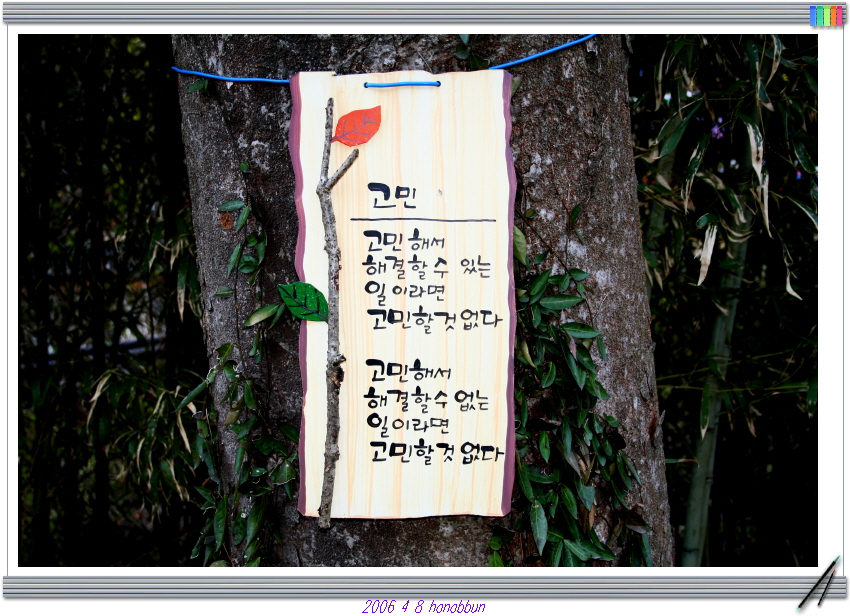 고민
고민해서
해결할 수 있는
일이라면
고민할것 없다
고민해서
해결할수 없는
일이라면
고민할것 없다
2006 4 8 hanabbun